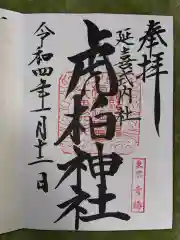 奉拝
延喜式内社
虎柏神社
東京 青梅
令和四年十一月十二日